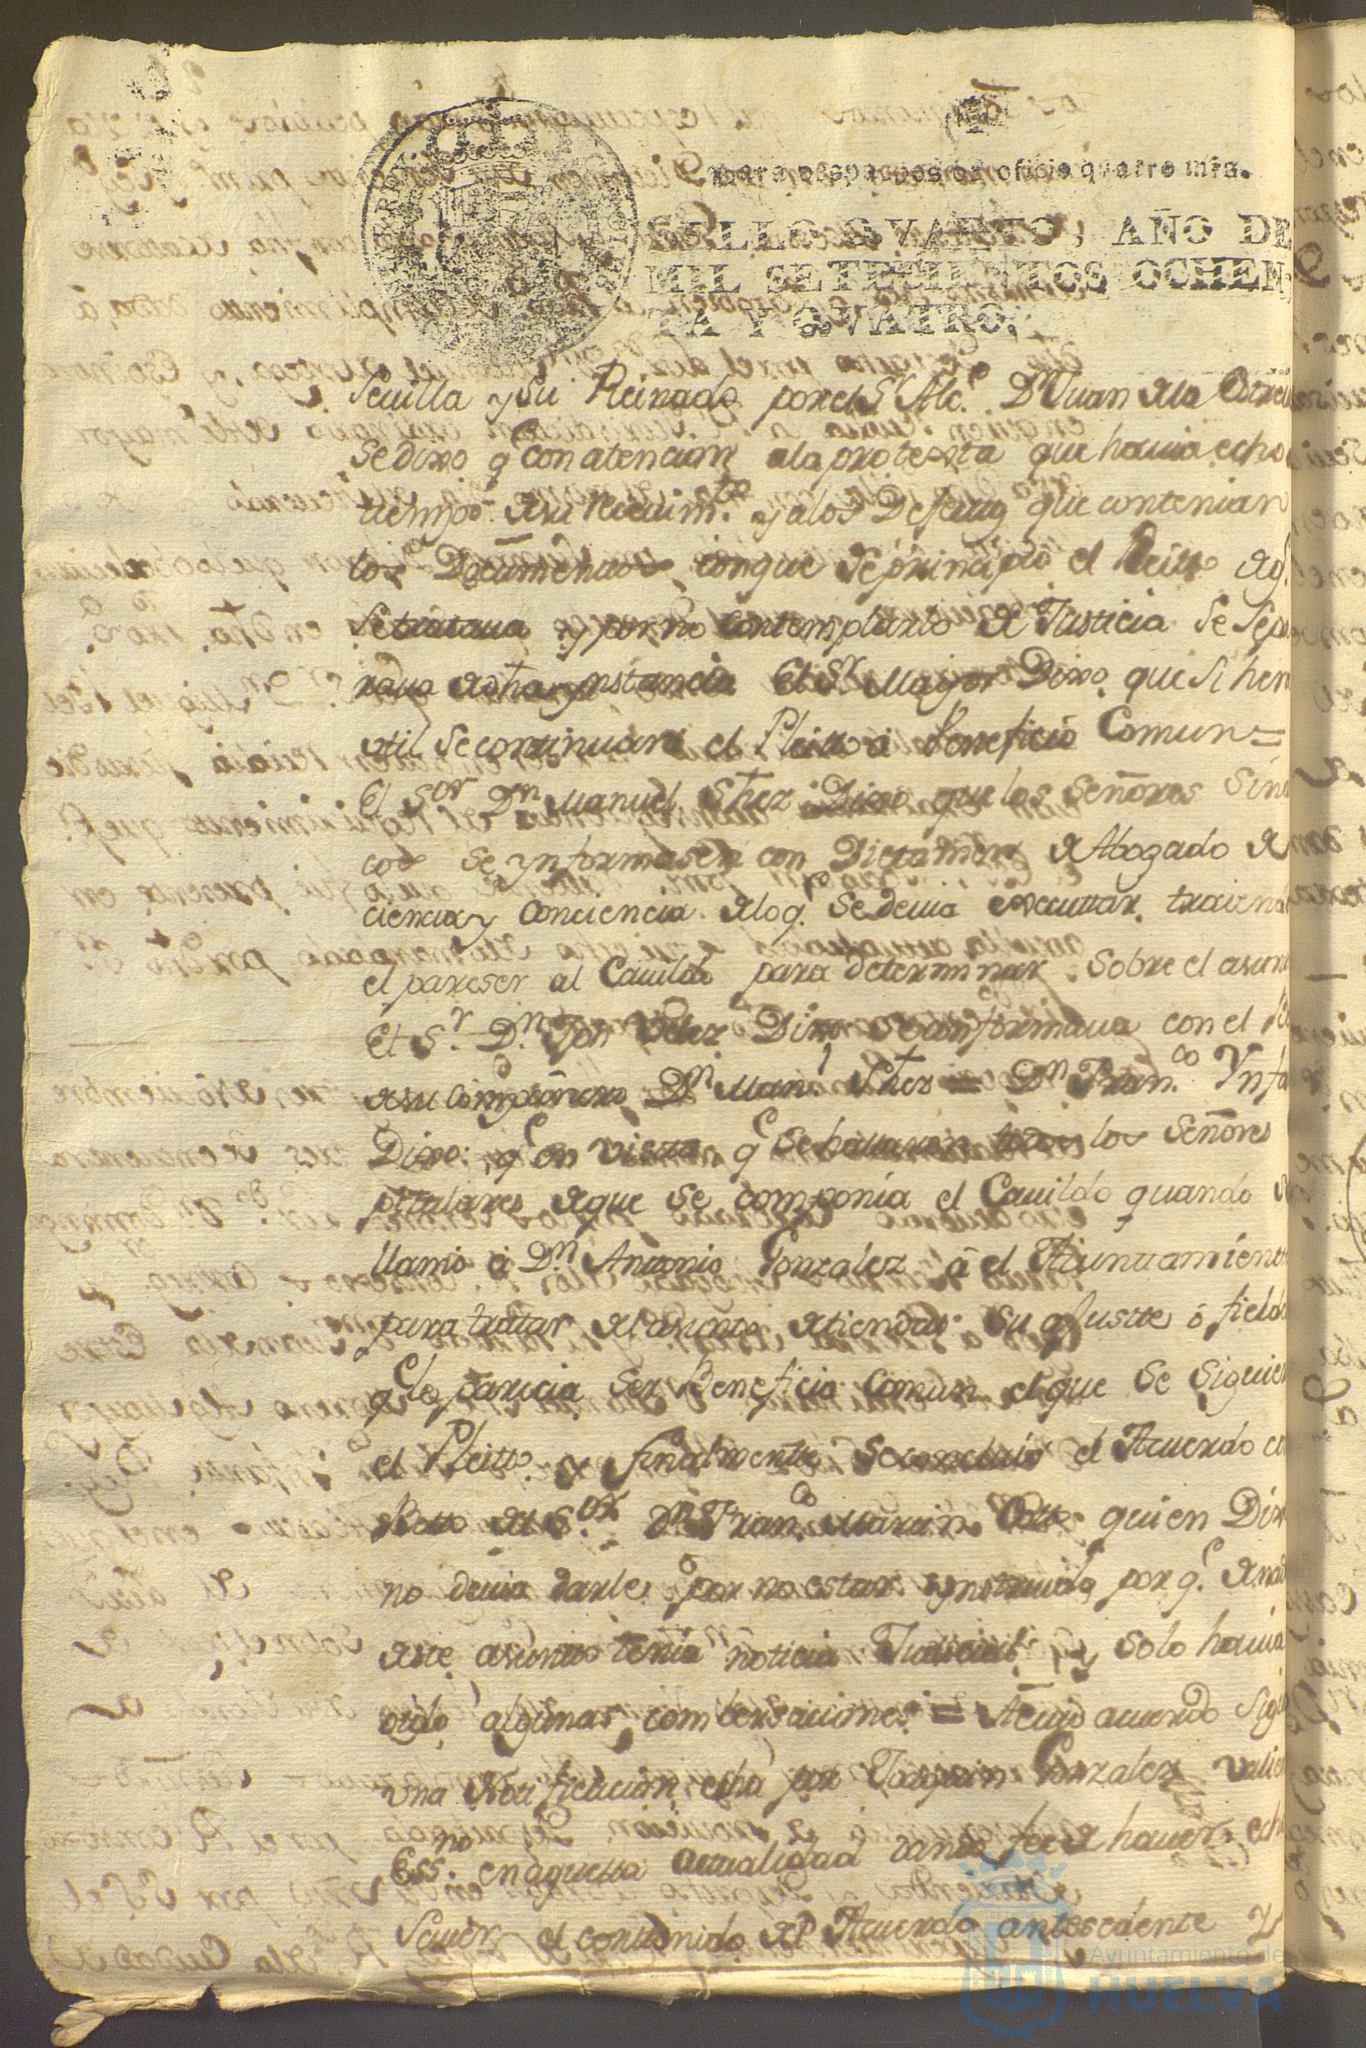 para despachos de oficio quatro mrs.
SELLO QVARTO, AÑO DE
MIL SETECIENTOS OCHEN,
TA Y QVATRO.
Seuilla y su Reinado por el Sr. Alc.e Dn Juan de la
Se Dixo q.e con atencion a la protexta que hauia echo
tiempo de su reciuim.to y a los Defectos que contenian
los Documentos conque se principio el Pleito de q.
Se trataua y por no contemplarlo de Justicia Se Sepa
raua de dha ynstancia El Sr. Mayor Dixo. que si hera
util Se continuara el Pleito a Beneficio Comun =
El Sor Dn Manuel Shez Dixo que los Señores Sindi
cos Se ynformasen con Dictamen de Abogado de
ciencia y Conciencia de lo q.e se deuia executar, traiendo
el pareser al Cauildo para determinar Sobre el asun
El Sr. Dn. Velez Dixo Se conformaua con el
de su compañero Dn Manl Shez = Dn Fran.co Ynfa
Dixo: q.e en vista q.e se hallauan todos los Señores
pitulares de que Se componia el Cauildo quando se
llamó á Dn Antonio Gonzalez á el Aiuntamiento
para tratar del asunto de tiendas su ajuste ó fieldad
q.e le parecia Ser Beneficio Comun el que Se Siguiera
el Pleito. y finalmente Se concluió el Acuerdo con
Botto del Sor Dn Fran.co Marin quien Dixo
no deuia darle por no estar ynstruido, por q.e de nada
de este asunto tenia noticia Judicial y solo hauia
oido algunas combersaciones = A cuio acuerdo sigue
una Notificacion echa por Joaquin Gonzalez
Ess.no en aquella actualidad dando fee de hauer echo
Sauer el contenido del Acuerdo antesedente y
Ayuntamiento de
HUELVA